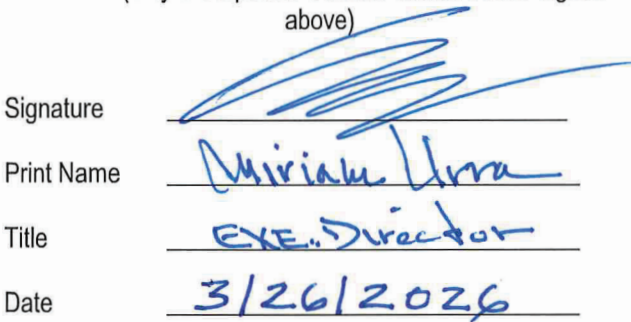 above)
Signature
Print Name Miriam Urra
Title EXE. Director
Date 3/26/2026